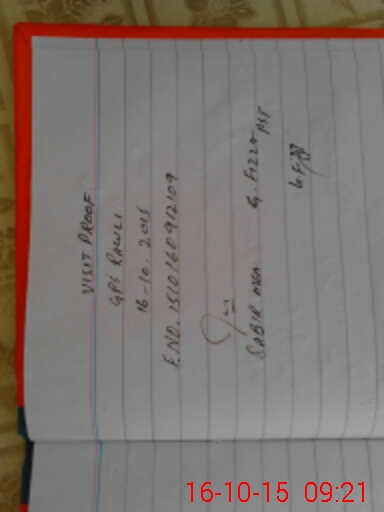 VISIT PROOF
GPS RAWLI
16-10-2015
F.NO. 1510160912109
SABIR G. FIZZA PST
16-10-15 09:21